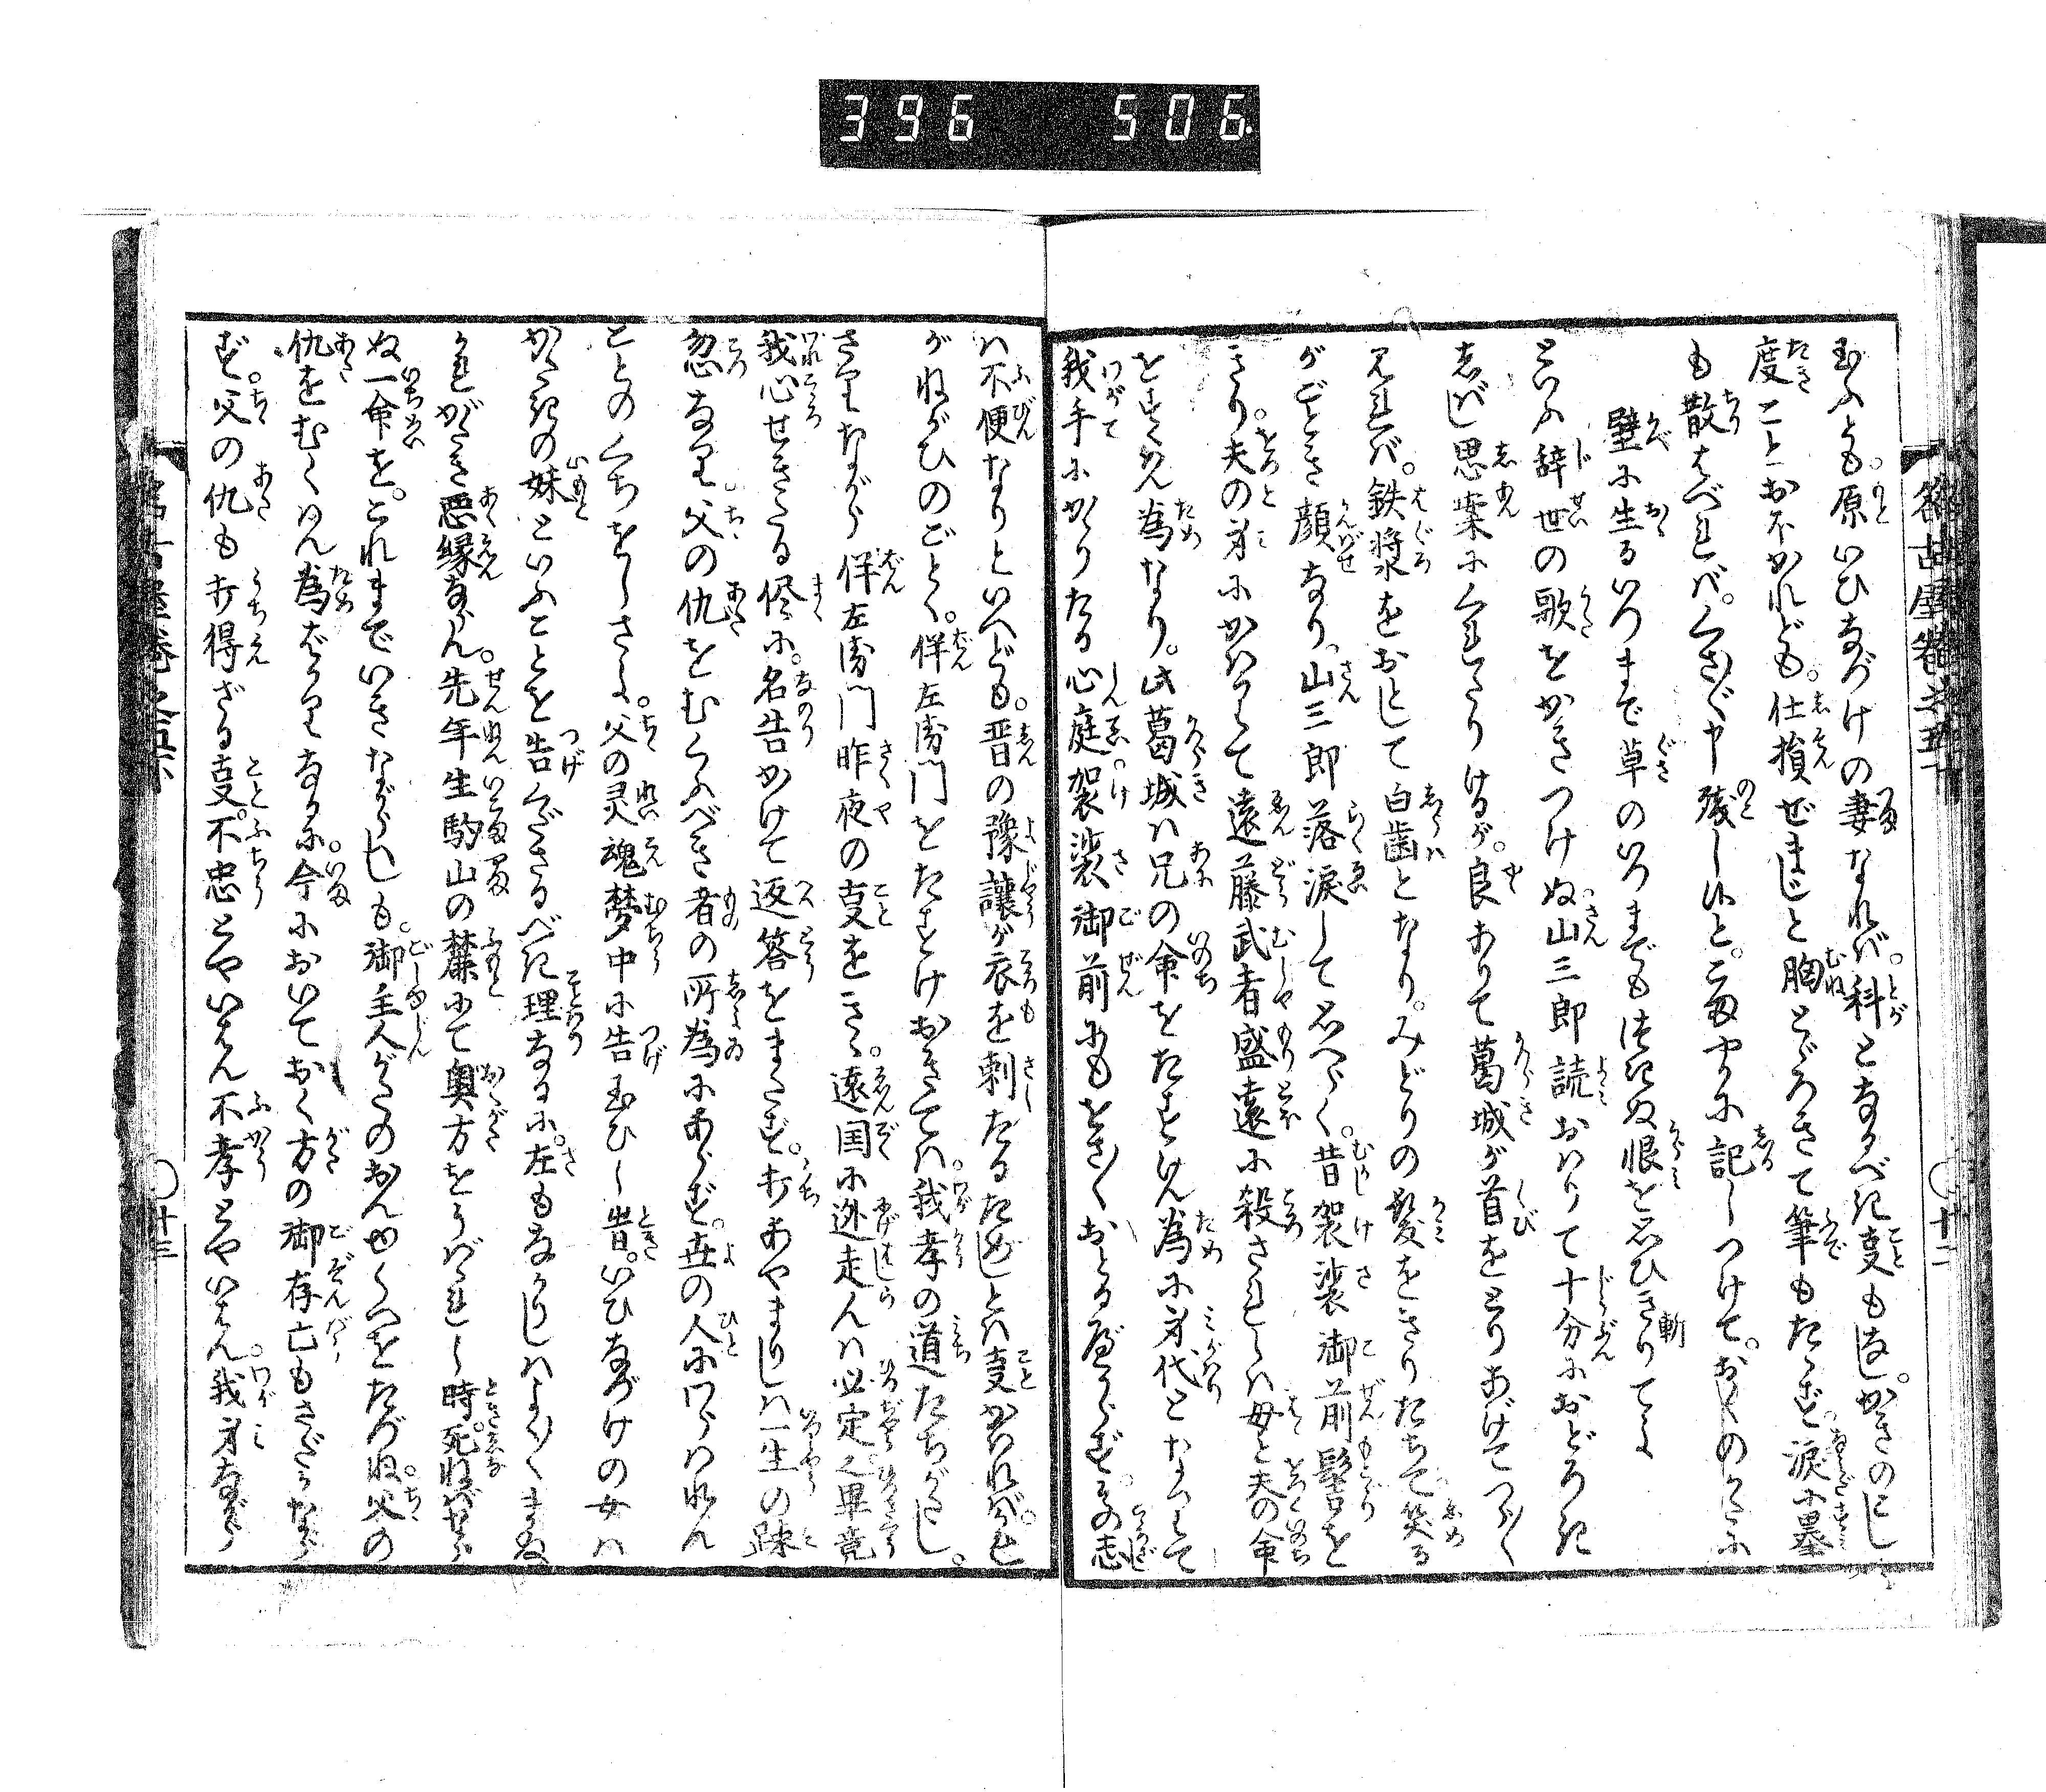 396 506.
玉ふとも。原いひなづけの妻なれば。科となるべき支もなし。かきのこし
度ことおほかれども。仕損ぜまじと胸とゞろきて筆もたゝず。涙に墨
も散はべれば。くさ〴〵申残し候と。こまやかに記しつけて。おくのかたに
壁に生るいつまで草のいつまでもつきぬ恨を思ひきりてよ
といふ辞世の歌をかきつけぬ山三郎読おはりて十分におどろき
しばし思案にくれたりけるが。良ありて葛城が首をとりあげてつら〳〵
見れば。鉄漿をおとして白歯となり。みどりの髪をきりたちて。笑る
がごとき顔なり。山三郎落涙して思へらく。昔袈裟御前髻を
きり。夫の身にかはりて遠藤武者盛遠に殺されしは母と夫の命
をすくはん為なり。此葛城は兄の命をたすけん為に身代となりて
我手にかゝりたる心庭。袈裟御前にもをさ〳〵おとるべからず。その志
は不便なりといへども。晋の豫譲が衣を刺たるためしとは支かはれば。也
がねがひのごとく。伴左衛門をたすけおきては。我孝の道たちがたし。
さりながら伴左衛門昨夜の支をきゝ。遠国に迯走んは必定也畢竟
我心せきたる侭に。名告かけて返答をまたず。打あやまりしは一生の疎
忽なり父の仇をむくふべき者の所為にあらず。世の人にわらはれん
ことのくちをしさよ。父の灵魂夢中に告玉ひし時。いひなづけの女は
かたきの妹といふことを告くださるべき理なるに。左もなかりしはよく〳〵まぬ
かれがたき悪縁ならん。先年生駒山の麓にて奥方をうばゝれし時。死ねばならぬ
ぬ一命を。これまでいきながらへしも。御主人がたのおんゆくへをたづね。父の
仇をむくはん為ばかりなるに。今においておく方の御存亡もさだかならず
ず。父の仇も打得ざる支。不忠とやいはん不孝とやいはん。我身ながら
十二
十三